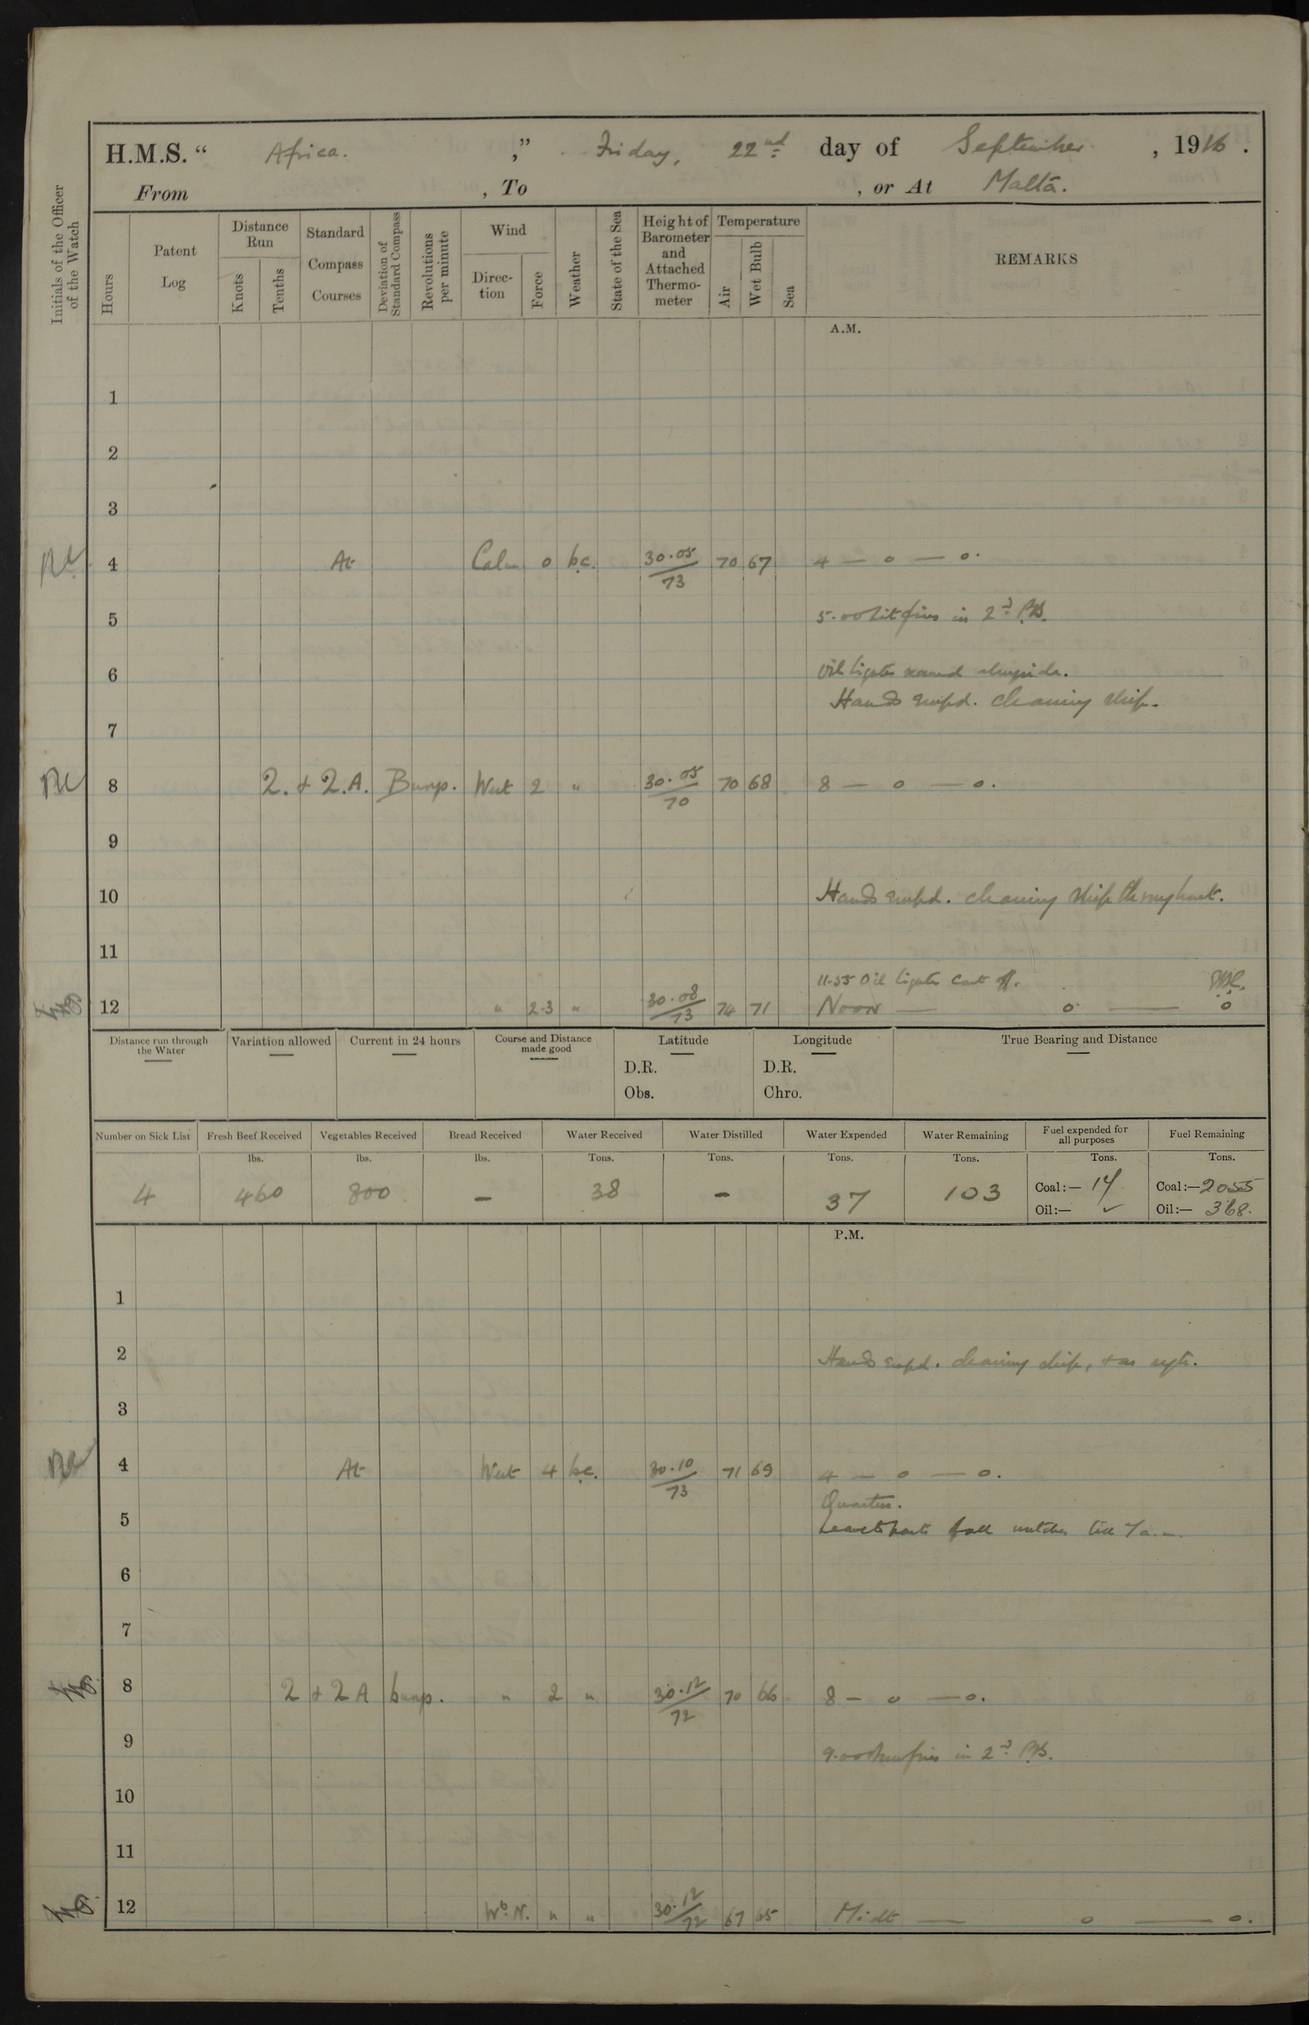 H.M.S. “ Africa. ,” Friday, 22nd day of September , 1916 .
From , To , or At Malta.
Initials of the Officer of the Watch
Hours
Patent Log
Distance Run
Knots
Tenths
Standard Compass Courses
Deviation of Standard Compass
Revolutions per minute
Wind
Direction
Force
Weather
State of the Sea
Height of Barometer and Attached Thermometer
Temperature
Air
Wet Bulb
Sea
REMARKS
A.M.
1
2
3
4 At Calm 0 b.c. 30.05/73 70 67 4 — o — o.
5 5.00 Lit fires in 2nd P.B.
6 Oil lighter secured alongside.
Hands empd. cleaning ship.
7
8 2. + 2.A. Bunps. West 2 " 30.05/70 70 68 8 — o — o.
9
10 Hands empd. cleaning ship throughout.
11
11.55 Oil lighter cast off.
12 " 2-3 " 30.08/73 74 71 Noon — o — o
Distance run through the Water
Variation allowed
Current in 24 hours
Course and Distance made good
Latitude
D.R.
Obs.
Longitude
D.R.
Chro.
True Bearing and Distance
Number on Sick List Fresh Beef Received Vegetables Received Bread Received Water Received Water Distilled Water Expended Water Remaining Fuel expended for all purposes Fuel Remaining
lbs. lbs. lbs. Tons. Tons. Tons. Tons. Tons. Tons.
4 460 800 — 38 — 37 103 Coal:— 14 Coal:— 2055
Oil:— ✓ Oil:— 368.
P.M.
1
2 Hands empd. cleaning ship, + as reqte.
3
4 At West 4 b.c. 30.10/73 71 69 4 — o — o.
Quarters.
5 Leave to part of all watches till 7 a.m.
6
7
8 2 + 2 A bunps. " 2 " 30.12/72 70 66 8 — o — o.
9 9.00 fires in 2nd P.B.
10
11
12 W.b.N. " " 30.12/72 67 65 Midt — o — o.